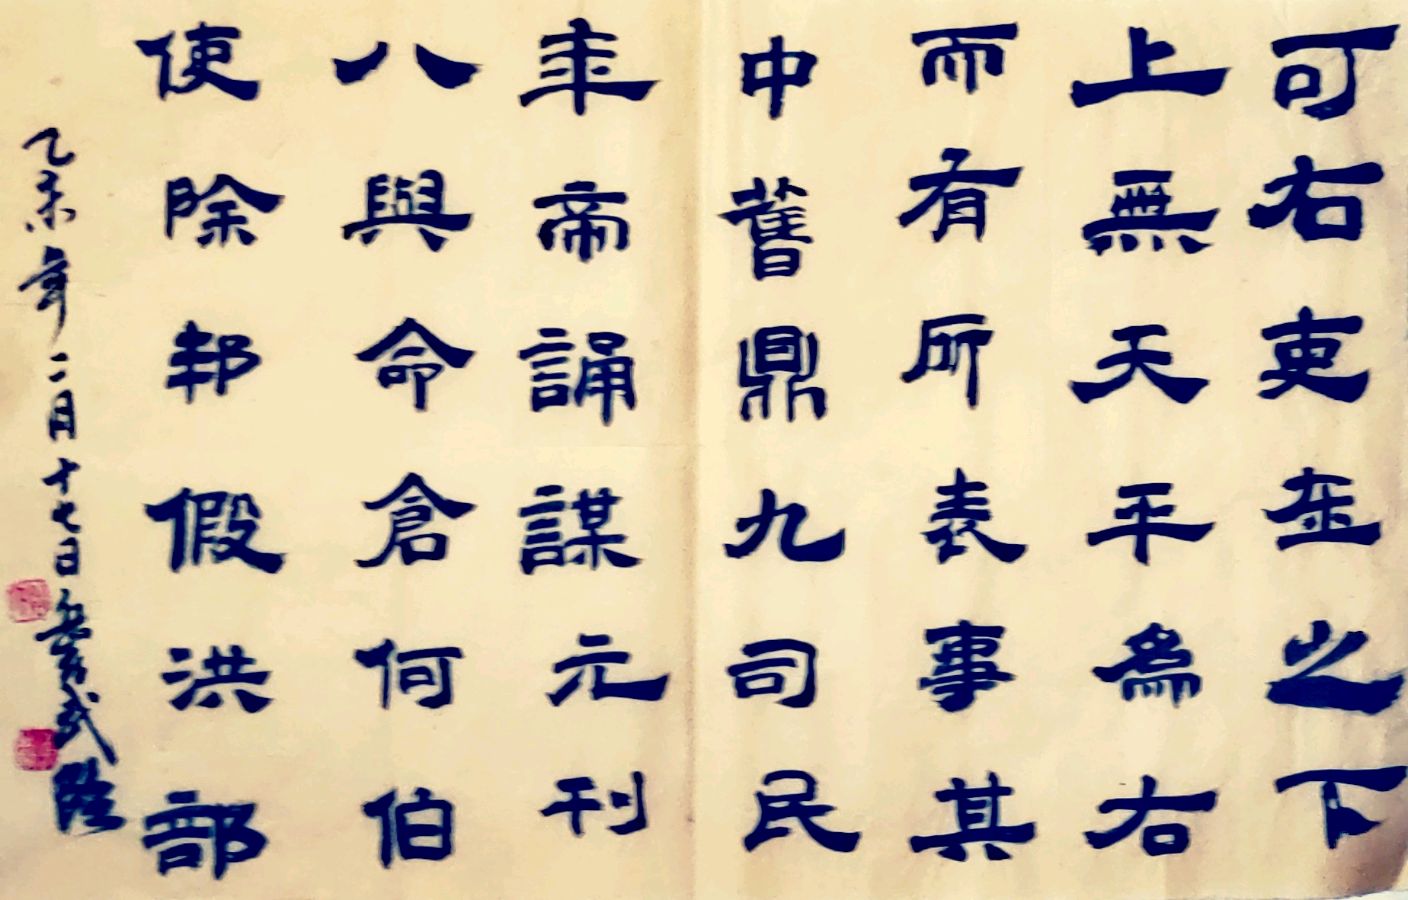 可右吏在之下
上無天平為右
而有所表事其
中舊鼎九司民
年帝誦謀元刊
八與命倉何伯
使除邦假洪部
乙未年二月十七日